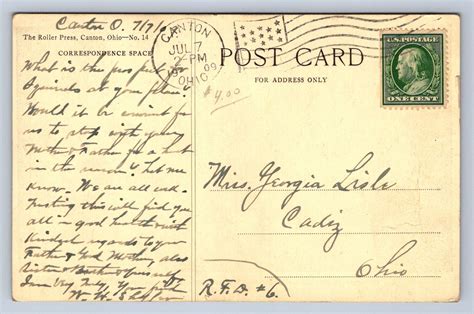 Canton O. 7/7/
The Roller Press, Canton, Ohio—No. 14
CORRESPONDENCE SPACE
What is the prospect for
Squirrels at your place?
Would it be convenient for
us to stop with your
Mother & Father for a
in the ? Let me
Know. We are all well.
Trusting this will find you
all in good health with
Kindest regards to your
Father & Mother, also
Sister &
I am Very Truly
W. H.
CANTON
JUL 7
2-PM
1909
OHIO
POST CARD
FOR ADDRESS ONLY
$4.00
U.S. POSTAGE
ONE CENT
Miss. Georgia Lisle
Cadiz
Ohio
R.F.D. #6.